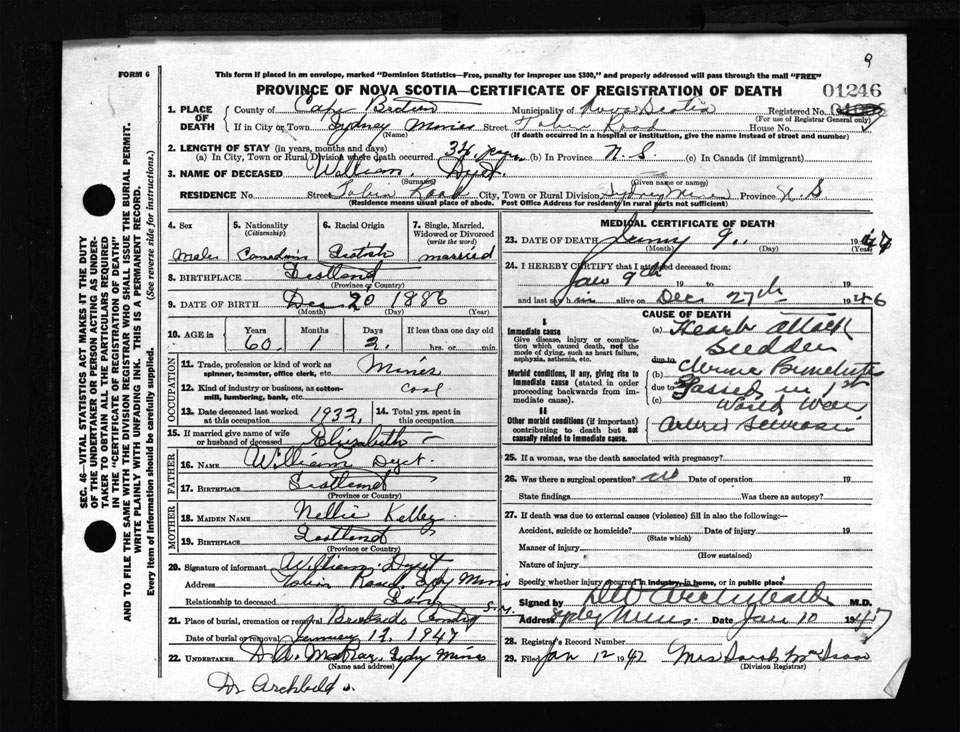 9
FORM 6
This form if placed in an envelope, marked "Dominion Statistics—Free, penalty for improper use $300," and properly addressed will pass through the mail "FREE"
PROVINCE OF NOVA SCOTIA—CERTIFICATE OF REGISTRATION OF DEATH
01246
1. PLACE OF DEATH
County of Cape Breton Municipality of Nova Scotia Registered No.
(For use of Registrar General only)
If in City or Town Sydney Mines Street Tobin Road House No.
(Name) (If death occurred in a hospital or institution, give the name instead of street and number)
2. LENGTH OF STAY (in years, months and days)
(a) In City, Town or Rural Division where death occurred 34 years (b) In Province N. S. (c) In Canada (if immigrant)
3. NAME OF DECEASED William Dyet
(Surname) (Given name or names)
RESIDENCE No. Street Tobin Road City, Town or Rural Division Sydney Mines Province N. S.
(Residence means usual place of abode. Post Office Address for residents in rural parts not sufficient)
4. Sex Male
5. Nationality (Citizenship) Canadian
6. Racial Origin Scotish
7. Single, Married, Widowed or Divorced (write the word) married
8. BIRTHPLACE Scotland
(Province or Country)
9. DATE OF BIRTH Dec 20 1886
(Month) (Day) (Year)
10. AGE in Years Months Days If less than one day old
60 1 2 hrs. or min.
OCCUPATION
11. Trade, profession or kind of work as spinner, teamster, office clerk, etc. Miner
12. Kind of industry or business, as cotton-mill, lumbering, bank, etc. Coal
13. Date deceased last worked at this occupation 1933
14. Total yrs. spent in this occupation
15. If married give name of wife or husband of deceased Elizabeth
FATHER
16. NAME William Dyet
17. BIRTHPLACE Scotland
(Province or Country)
MOTHER
18. MAIDEN NAME Nellie Kelley
19. BIRTHPLACE Scotland
(Province or Country)
20. Signature of informant William Dyet
Address Tobin Road Sydy Mines
Relationship to deceased Son
21. Place of burial, cremation or removal Brookside S.M.
Date of burial or removal January 12, 1947
22. UNDERTAKER D. A. McRay, Sydy Mines
(Name and address)
Dr Archibald
MEDICAL CERTIFICATE OF DEATH
23. DATE OF DEATH 9 1947
(Month) (Day) (Year)
24. I HEREBY CERTIFY that I attended deceased from:
Jan 9th 19 to 19
and last say him alive on Dec 27th 1946
CAUSE OF DEATH
I
Immediate cause
Give disease, injury or complication which caused death, not the mode of dying, such as heart failure, asphyxia, asthenia, etc.
(a) Heart attack
sudden
due to
Morbid conditions, if any, giving rise to immediate cause (stated in order proceeding backwards from immediate cause).
(b) due to Gassed in 1st
(c) World War
II
Other morbid conditions (if important) contributing to death but not causally related to immediate cause.
25. If a woman, was the death associated with pregnancy?
26. Was there a surgical operation? no Date of operation 19
State findings Was there an autopsy?
27. If death was due to external causes (violence) fill in also the following:—
Accident, suicide or homicide? Date of injury 19
(State which)
Manner of injury
(How sustained)
Nature of injury
Specify whether injury occurred in industry, in home, or in public place
Signed by Archibald M.D.
Address Sydney Mines. Date Jan 10 1947
28. Registrar's Record Number
29. Filed Jan 12 1947 Mrs Sarah McIsaac
(Division Registrar)
SEC. 46—VITAL STATISTICS ACT MAKES IT THE DUTY
OF THE UNDERTAKER OR PERSON ACTING AS UNDER-
TAKER TO OBTAIN ALL THE PARTICULARS REQUIRED
IN THE "CERTIFICATE OF REGISTRATION OF DEATH"
AND TO FILE THE SAME WITH THE DIVISION REGISTRAR WHO SHALL ISSUE THE BURIAL PERMIT.
WRITE PLAINLY WITH UNFADING INK. THIS IS A PERMANENT RECORD.
Every item of information should be carefully supplied. (See reverse side for instructions.)